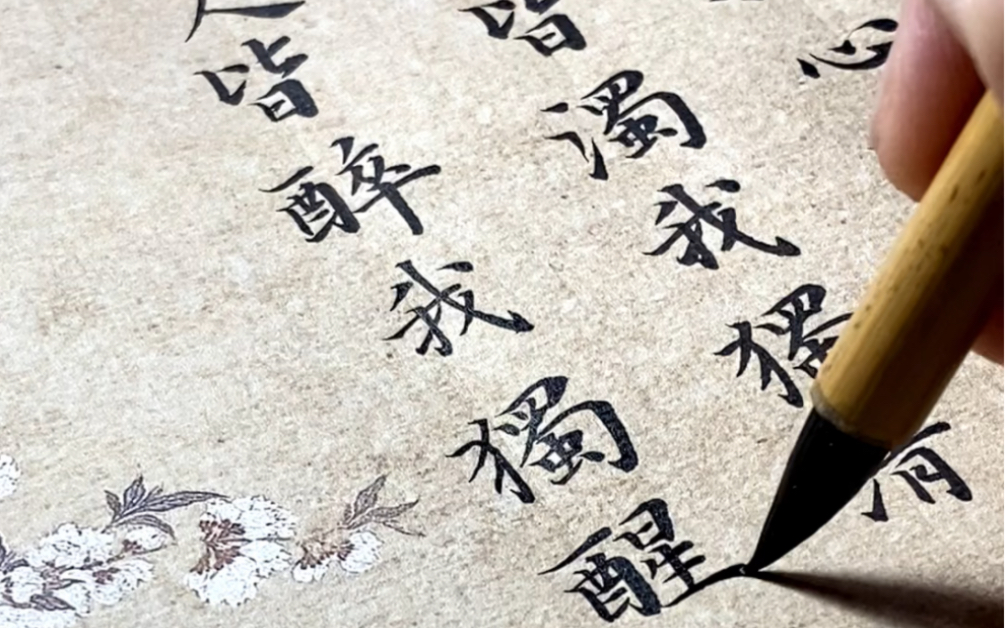 心
皆濁我獨清
人皆醉我獨醒